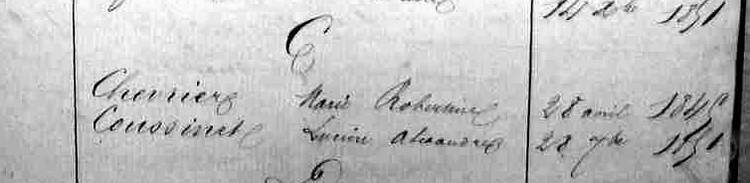 14 xbre 1851
C
Chevrier Marie Robertine 28 avril 1845
Coussinet Lucien Alexandre 28 7bre 1851
D